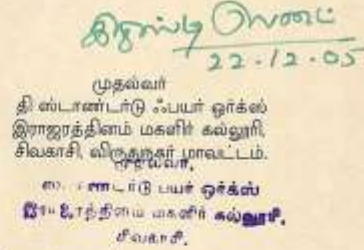 22-12-05
முதல்வர்
தி ஸ்டாண்டர்டு ஃபயர் ஒர்க்ஸ்
இராஜரத்தினம் மகளிர் கல்லூரி,
சிவகாசி, விருதுநகர் மாவட்டம்.
முதல்வர்,
பயர் ஒர்க்ஸ்
மகளிர் கல்லூரி,
சிவகாசி.